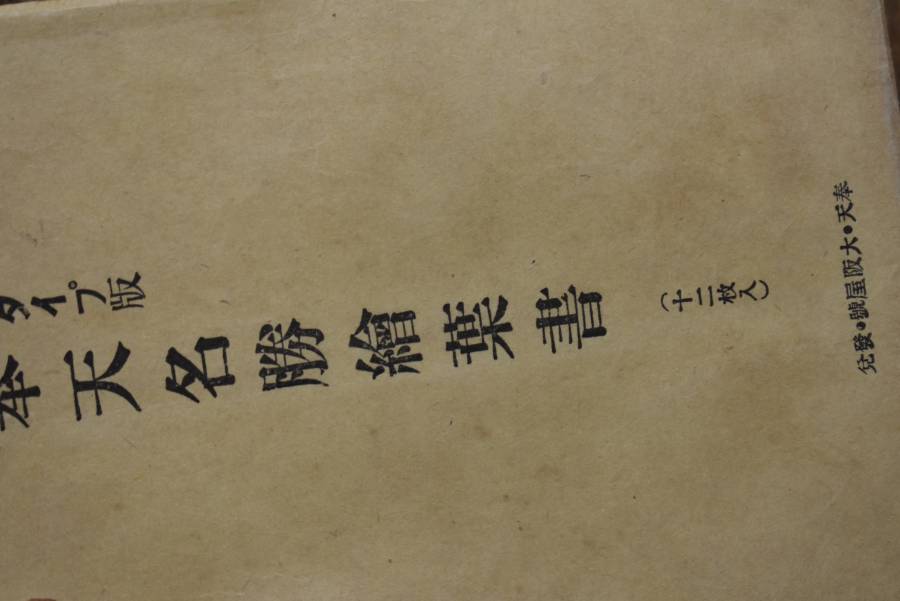 タイプ版
奉天名勝繪葉書
（十二枚入）
奉天・大阪屋號・發兌